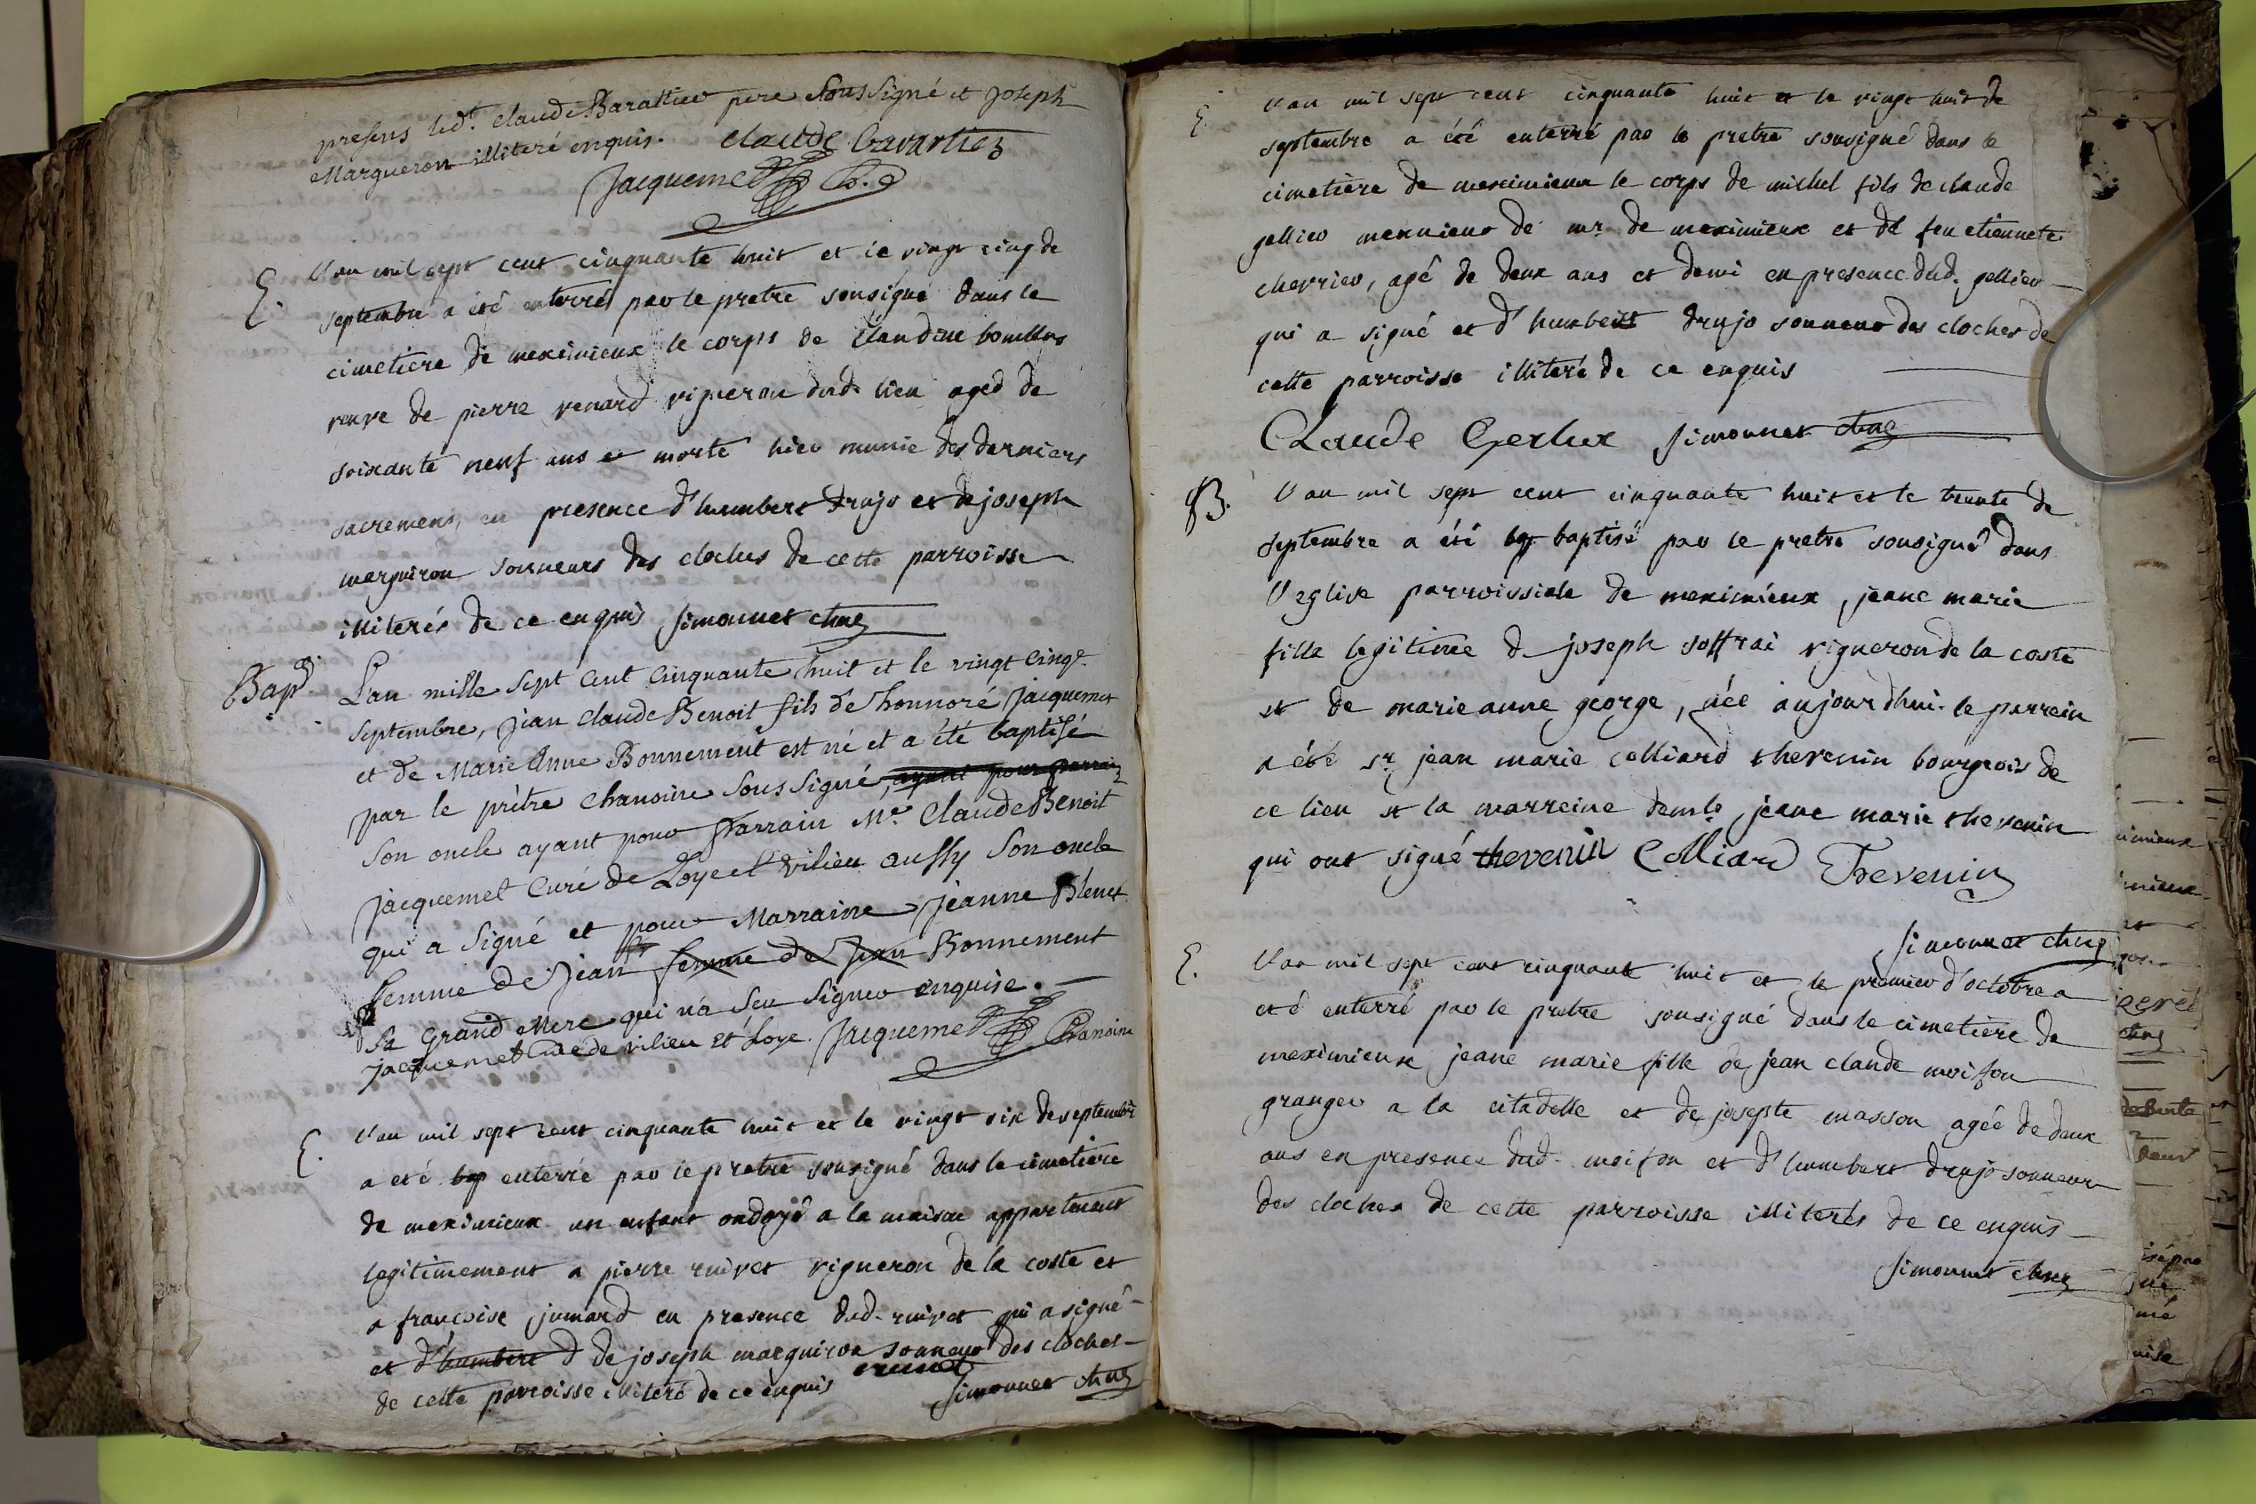 presens led. Claude Barattier pere Soussigné et Joseph
Margueron illiteré enquis. claude baratier
Jacquemet Ch.
E. L'an mil sept cent cinquante huit et le vingt cinq de
septembre a été enterré par le pretre sousigné dans le
cimetiere de meximieux le corps de Claudine
veuve de pierre renard vigneron dud. lieu aged de
soixante neuf ans et morte hier munie des derniers
sacremens, en presence d'humbert Drujo et de joseph
marguiron sonneurs des cloches de cette parroisse
illiterés de ce enquis simonnet chne
Bap. L'an mille sept cent cinquante huit et le vingt cinqe.
Septembre, Jean Claude Benoit fils de honnoré Jacquemet
et de Marie Anne Bonnement est né et a été baptisé
par le prètre chanoine Sous Signé, ayant pour parrain
Son oncle ayant pour Parrain Mr. Claude Benoit
Jacquemet Curé de Loye et vilieu aussy Son oncle
qui a Signé et pour Marraine Jeanne
femme de Jean femme de Jean Bonnement
Sa Grand Mere qui n'a Sçu Signer enquise.
jacquemet curé de vilieu Et Loye. Jacquemet Chanoine
E. L'an mil sept cent cinquante huit et le vingt six de septembre
a eté bap enterré par le pretre sousigné dans le cimetiere
de meximieux un enfant ondoyé a la maison appartenant
legitimement a pierre ruivet vigneron de la coste et
a francoise jumard en presence dud. ruivet qui a signé
et d'humbert d de joseph marguiron sonneur des cloches
de cette parroisse illiteré de ce enquis simonnet chne
E. L'an mil sept cent cinquante huit et le vingt huit de
septembre a été enterré par le pretre sousigné dans le
cimetiere de meximieux le corps de michel fils de claude
gellieu meunieur de mr. de meximieux et de feu etiennete
cherrier, agé de deux ans et demi en presence dud. gellieu
qui a signé et d'humbert drujo sonneur des cloches de
cette parroisse illiteré de ce enquis
Claude simonnet chne
B. L'an mil sept cent cinquante huit et le trente de
septembre a été bap baptisé par le pretre sousigné dans
l'eglise parroissiale de meximieux, jeane marie
fille legitime de joseph soffrai vigneron de la coste
et de marie anne george, née aujourd'hui. le parrein
a été sr. jean marie colliard thevenin bourgeois de
ce lieu et la marreine demle. jeane marie thevenin
qui ont signé thevenin Colliard Thevenin
simonnet chne
E. L'an mil sept cent cinquante huit et le premier d'octobre a
eté enterré par le pretre sousigné dans le cimetiere de
meximieux jeane marie fille de jean claude moiffon
granger a la citadelle et de josepte masson agée de deux
ans en presence dud. moifon et d'humbert drujo sonneur
des cloches de cette parroisse illiterés de ce enquis
simonnet chne